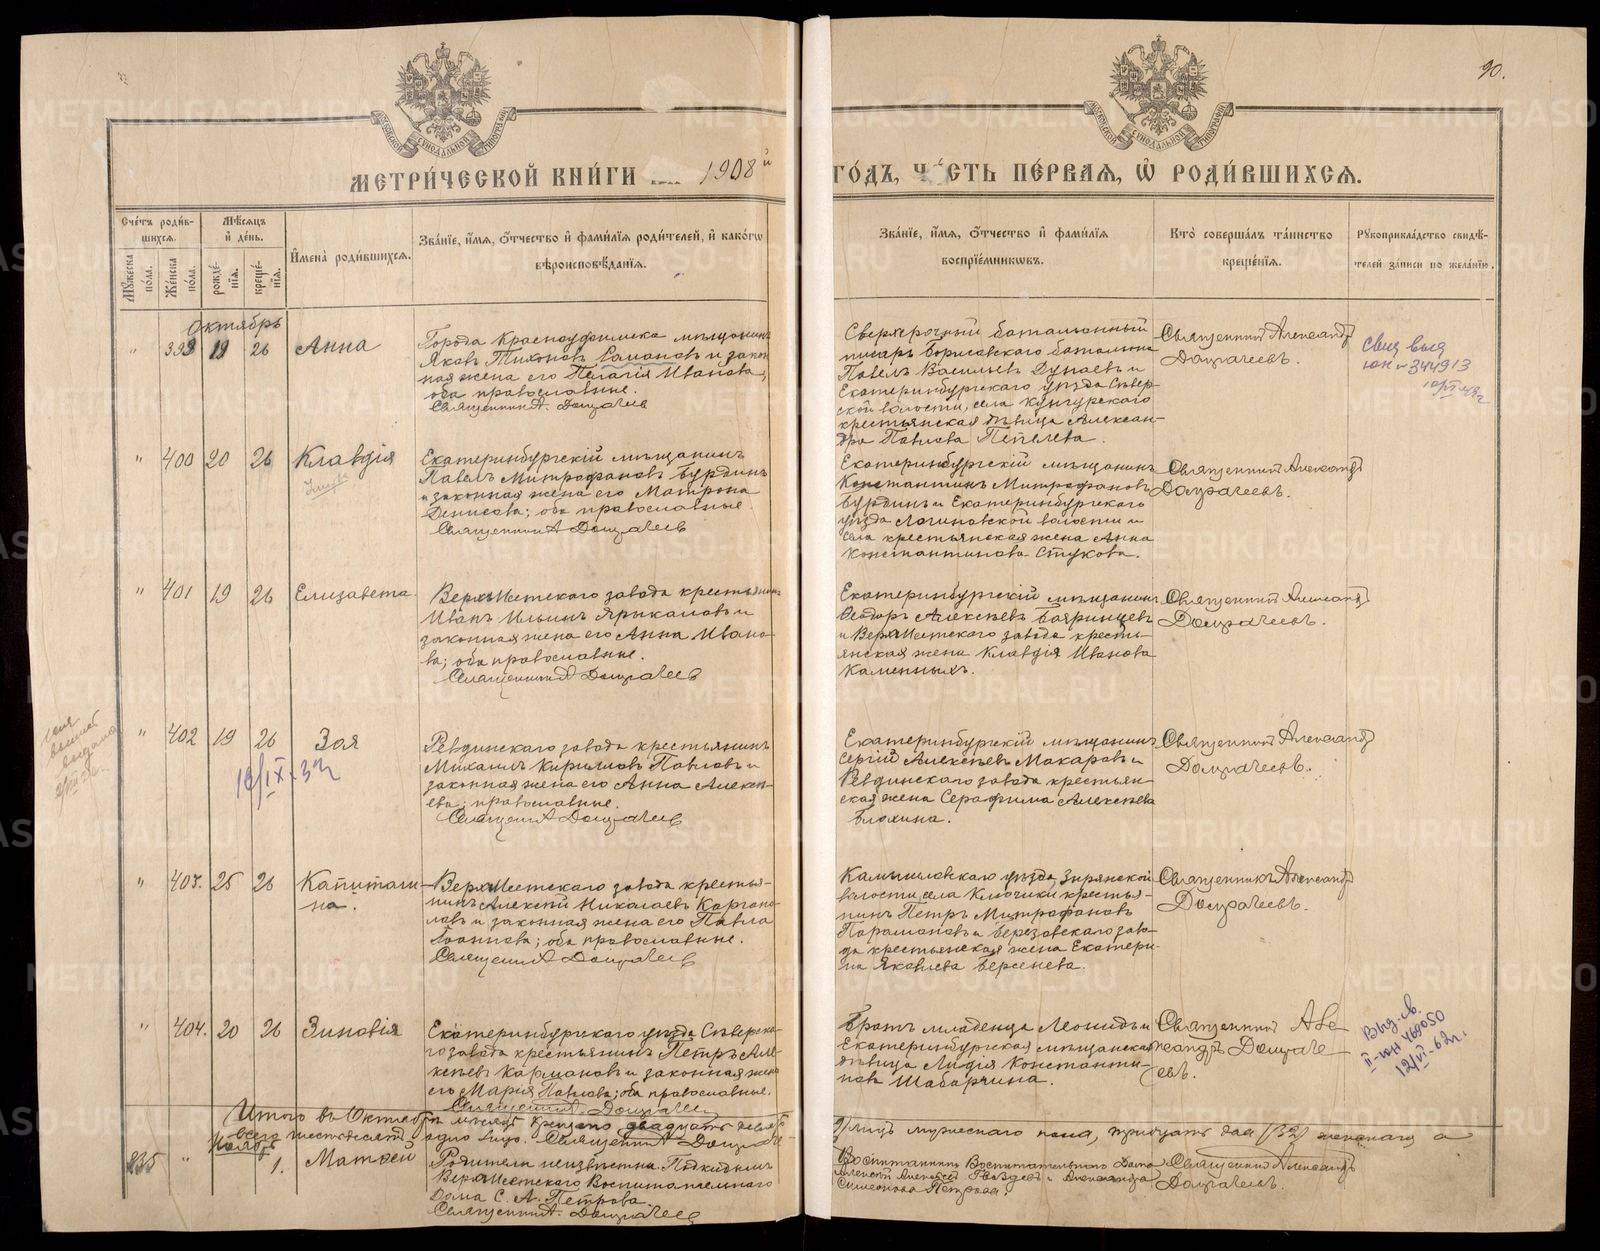 90.
МЕТРИ́ЧЕСКОЙ КНИ́ГИ 1908 й
ГО́ДЪ, Ч СТЬ ПЕ́РВАЯ, Ѽ РОДИ́ВШИХСЯ.
Сче́тъ роди́в-
шихся.
Мѣ́сяцъ
и҆ де́нь.
Мꙋ́жеска
по́ла.
Же́нска
по́ла.
рожде́-
нїя.
креще́-
нїя.
И҆мена̀ роди́вшихся.
Зва́нїе, и҆́мя, ѻ҆́тчество и҆ фами́лїя роди́телей, и҆ како́гѡ
вѣроисповѣ́данїя.
Зва́нїе, и҆́мя, ѻ҆́тчество и҆ фами́лїя
воспрїе́мникѡвъ.
Кто̀ соверша́лъ та́инство
креще́нїя.
Рꙋкоприкла́дство свидѣ́-
телей за́писи по жела́нїю.
Октябрь
" 399 19 26 Анна
Города Красноуфимска мѣщанинъ
Яковъ Тихоновъ Романовъ и закон
ная жена его Пелагія Иванова,
оба православные.
Священникъ А. Домрачеев
Сверхсрочный баталіонный
писарь Борисовскаго баталіона
Павелъ Васильевъ Дунаевъ и
Екатеринбургскаго уѣзда Сѣвер-
ской волости, села Кунгурскаго
крестьянская дѣвица Алексан-
дра Павлова Пепелева.
Священникъ Александръ
Домрачеевъ.
Свид выд
ЮН № 344913
" 400 20 26 Клавдія
Екатеринбургскій мѣщанинъ
Павелъ Митрофановъ Бурдинъ
и законная жена его Матрона
Денисова; оба православные.
Священникъ А Домрачеевъ
Екатеринбургскій мѣщанинъ
Константинъ Митрофановъ
Бурдинъ и Екатеринбургскаго
уѣзда Логиновской волости и
села крестьянская жена Анна
Константинова Стукова.
Священникъ Александръ
Домрачеевъ.
" 401 19 26 Елизавета
ВерхИсетскаго завода крестьянинъ
Иванъ Ильинъ Ярыкаловъ и
законная жена его Анна Ивано-
ва; оба православные.
Священникъ А Домрачеев
Екатеринбургскій мѣщанинъ
Ѳеодоръ Алексѣевъ Бояринцевъ
и ВерхИсетскаго завода кресть-
янская жена Клавдія Иванова
Каменныхъ.
Священникъ Александръ
Домрачеевъ.
" 402 19 26 Зоя
19/IX-37г
Ревдинскаго завода крестьянинъ
Михаилъ Кириловъ Павловъ и
законная жена его Анна Алексѣ-
ева; православные.
Священ А Домрачеев
Екатеринбургскій мѣщанинъ
Сергій Алексѣевъ Макаровъ и
Ревдинскаго завода крестьян-
ская жена Серафима Алексѣева
Блохина.
Священникъ Александръ
Домрачеевъ.
" 403. 25 26 Капитоли-
на.
ВерхИсетскаго завода крестья-
нинъ Алексѣй Николаевъ Каргапо-
ловъ и законная жена его Павла
Іоаннова; оба православные.
Священникъ А Домрачеев
Камышловскаго уѣзда Зырянской
волости, села Ключики крестья-
нинъ Петръ Митрофановъ
Парамоновъ и Березовскаго заво-
да крестьянская жена Екатери-
на Яковлева Берсенева.
Священникъ Александръ
Домрачеевъ.
" 404. 20 26 Зиновія
Екатеринбургскаго уѣзда Сѣверска-
го завода крестьянинъ Петръ Але-
ксѣевъ Кармановъ и законная жена
его Марія Павлова; оба православные.
Священникъ А. Домрачеев
Братъ младенца Леонидъ и
Екатеринбургская мѣщанская
дѣвица Лидія Константи-
нова Шабарчина.
Священникъ Але-
ксандръ Домраче-
евъ.
Выд. св.
II-ЮН 469050
12/VI-62г.
Итого въ Октябрѣ мѣсяцѣ крещено двадцать девять
всего шестьдесятъ одно лицо. Священникъ А Домрачеев
лицъ мужескаго пола, тридцать два (32) женскаго а
Ноябрь
235 " 1. Матѳей
Родители неизвѣстны. Подкидышъ
ВерхИсетскаго Воспитательнаго
Дома С. А. Петрова.
Священникъ А. Домрачеев
Воспитанникъ Воспитательнаго Дома
Алексѣй Алексѣевъ Гвоздевъ и Александра
Симеонова Петрова.
Священникъ Александръ
Домрачеевъ.
METRIKI.GASO-URAL.RU